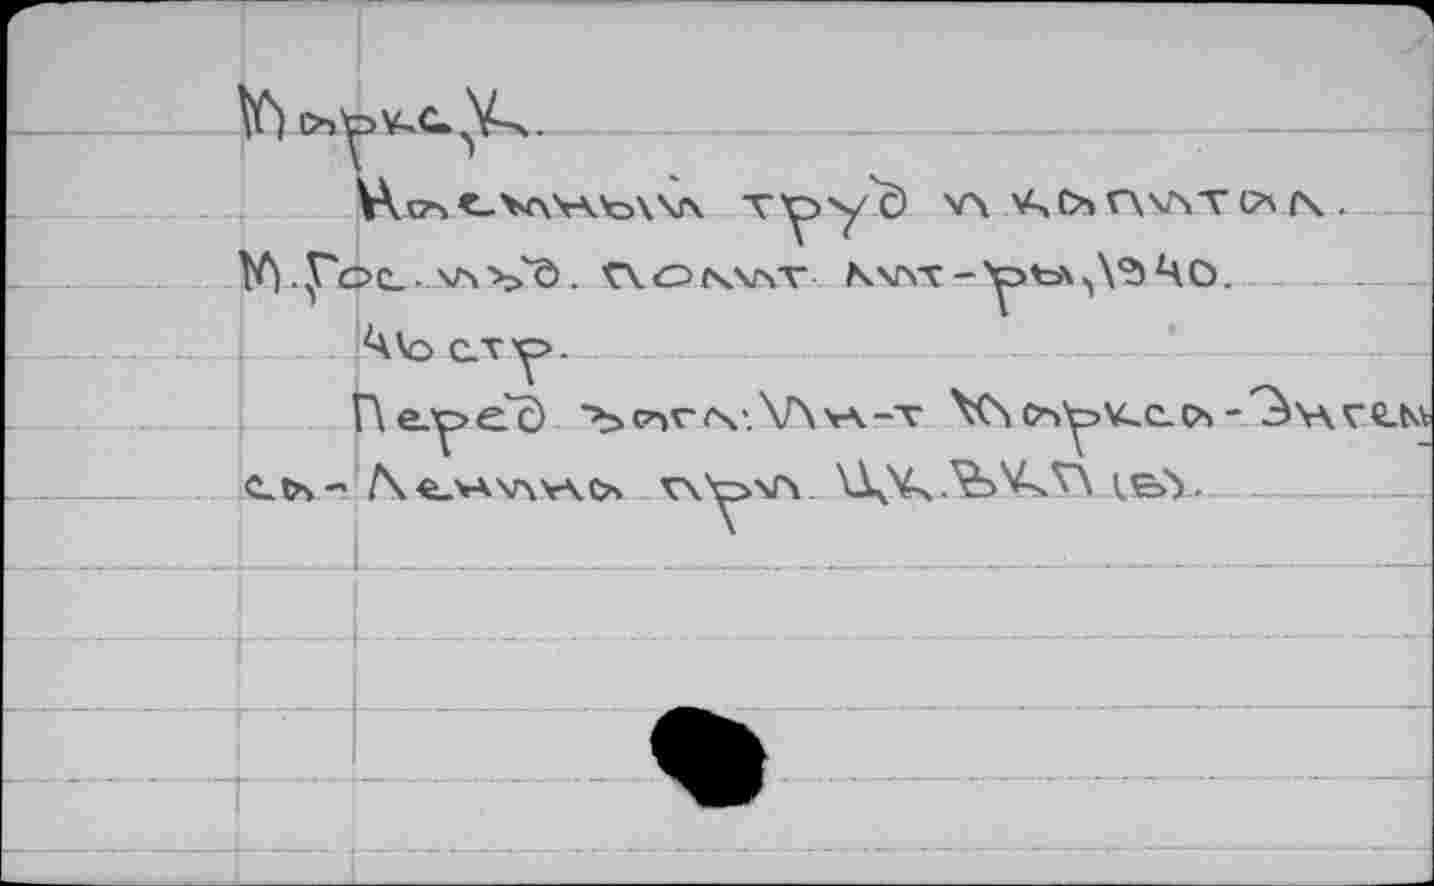 Маркс, К.
Наемный труд и капитал.
М. Гос. изд. полит. лит-ры, 1940.
46 стр.
Перед загл: Ин-т Маркса-Энгель
са-Ленина при ЦК.ВКП(б).